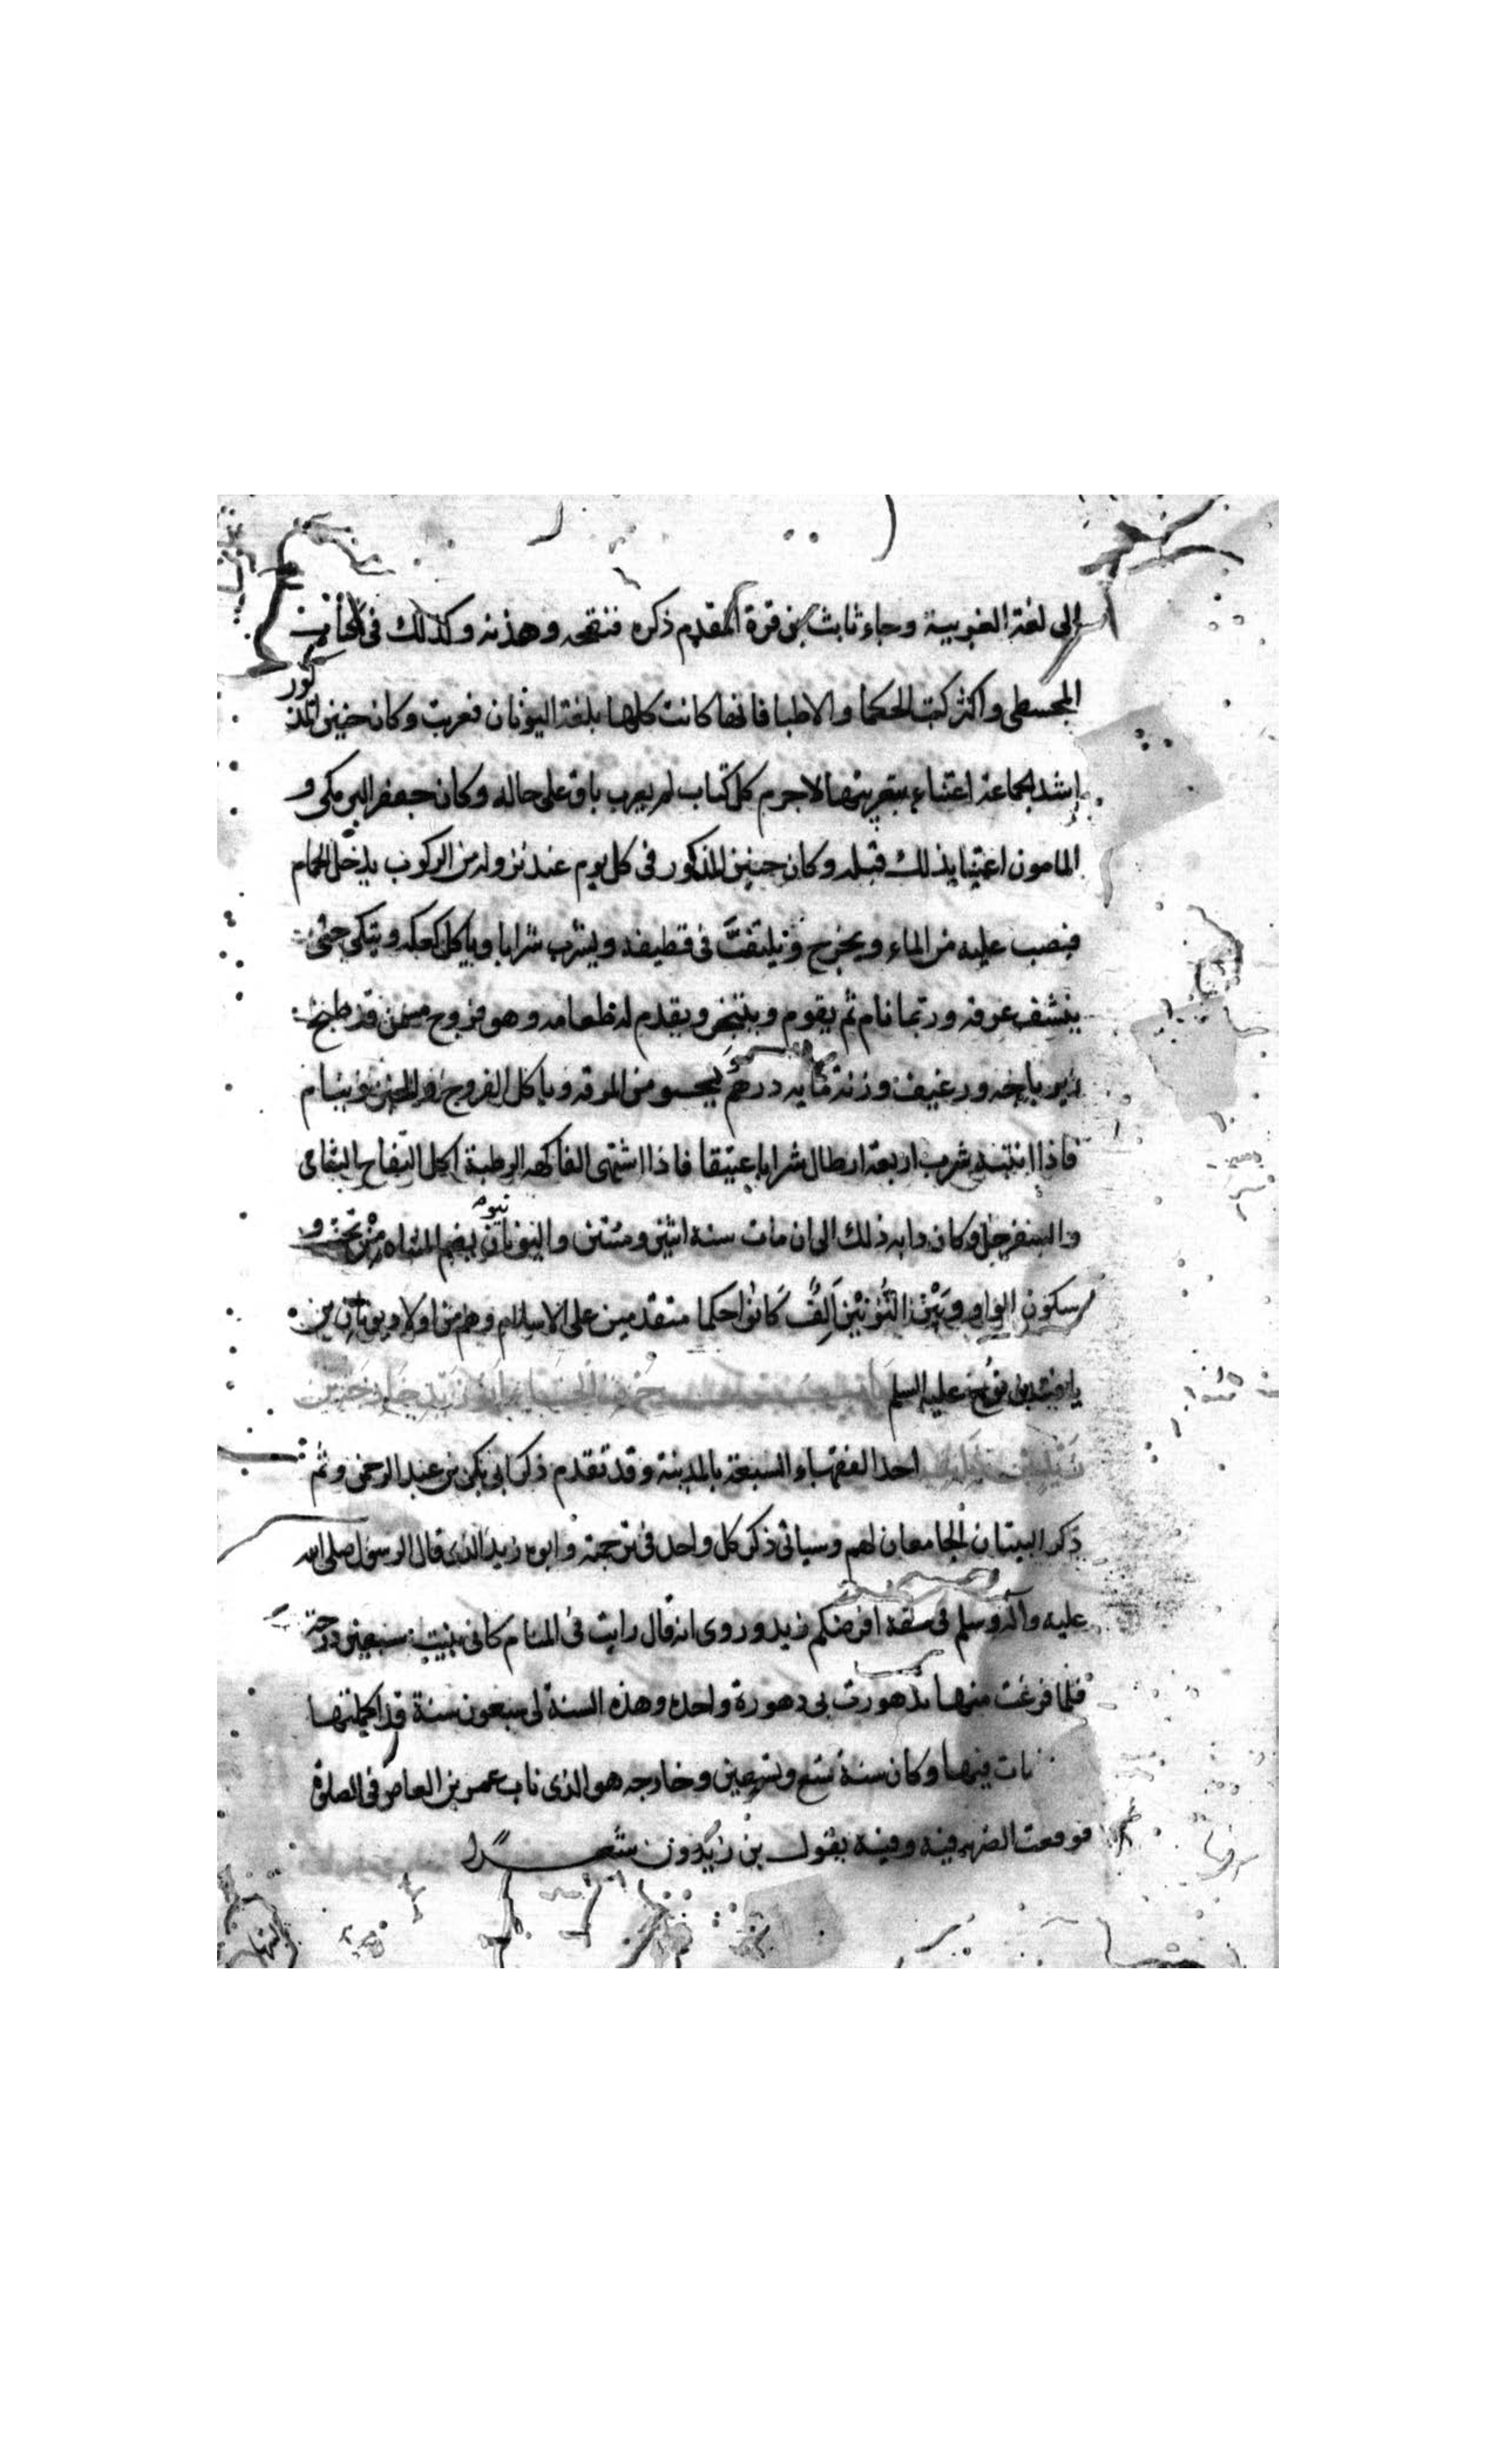 الى لغة العربية وجاء ثابت بن قرة المقدم ذكره فنقحه وهذبه وكذلك فى كتاب
المجسطى واكثر كتب الحكما والاطبا فانها كانت كلها بلغة اليونان فعربت وكان حنين المذكور
اشد الجماعة اعتناء بتعريبها لاجرم كل كتاب لم يعرب باق على حاله وكان جعفر البرمكى و
المامون اعتنيا بذلك قبله وكان حنين المذكور فى كل يوم عند نزوله من الركوب يدخل الحمام
فيصب عليه من الماء ويخرج فيلتف فى قطيفه ويشرب شرابا وياكل كعكه ويتكى حتى
ينشف عرقه وربما نام ثم يقوم ويتبخر ويقدم له طعامه وهو فروج مسمن قد طبخ
زيرباجه ورغيف وزنة مايه درهم فيحسو من المرقه وياكل الفروج والخبز وينام
فاذا انتبه شرب اربعة ارطال شرابا عتيقا فاذا اشتهى الفاكهه الرطبة اكل التفاح الشامى
والسفرجل وكان دابه ذلك الى ان مات سنة اثنين وستين واليونان بضم المثناه من تحت و
سكون الواو وبين النونين الف كانوا حكما متقدمين على الاسلام وهم من اولاد يونان بن
يافث بن نوح عليه السلم حرف الخاء ابو زيد خارجه بن
زيد بن ثابت احد الفقهاء السبعة بالمدينة وقد تقدم ذكر ابى بكر بن عبد الرحمن وثم
ذكر البيتان الجامعان لهم وسياتى ذكر كل واحد فى ترجمة وابوه زيد الذى قال الرسول صلى الله
عليه وآله وسلم فى حقه افرضكم زيد وروى انه قال رايت فى المنام كانى بنيت سبعين درجة
فلما فرغت منها تدهورت بى دهورة واحده وهذه السنة لى سبعون سنة قد اكملتها
فات فيها وكان سنة تسع وتسعين وخارجه هو الذى ناب عمرو بن العاص فى الصلوة
فوقعت الضربه فيه وفيه يقول بن زيدون شعرا